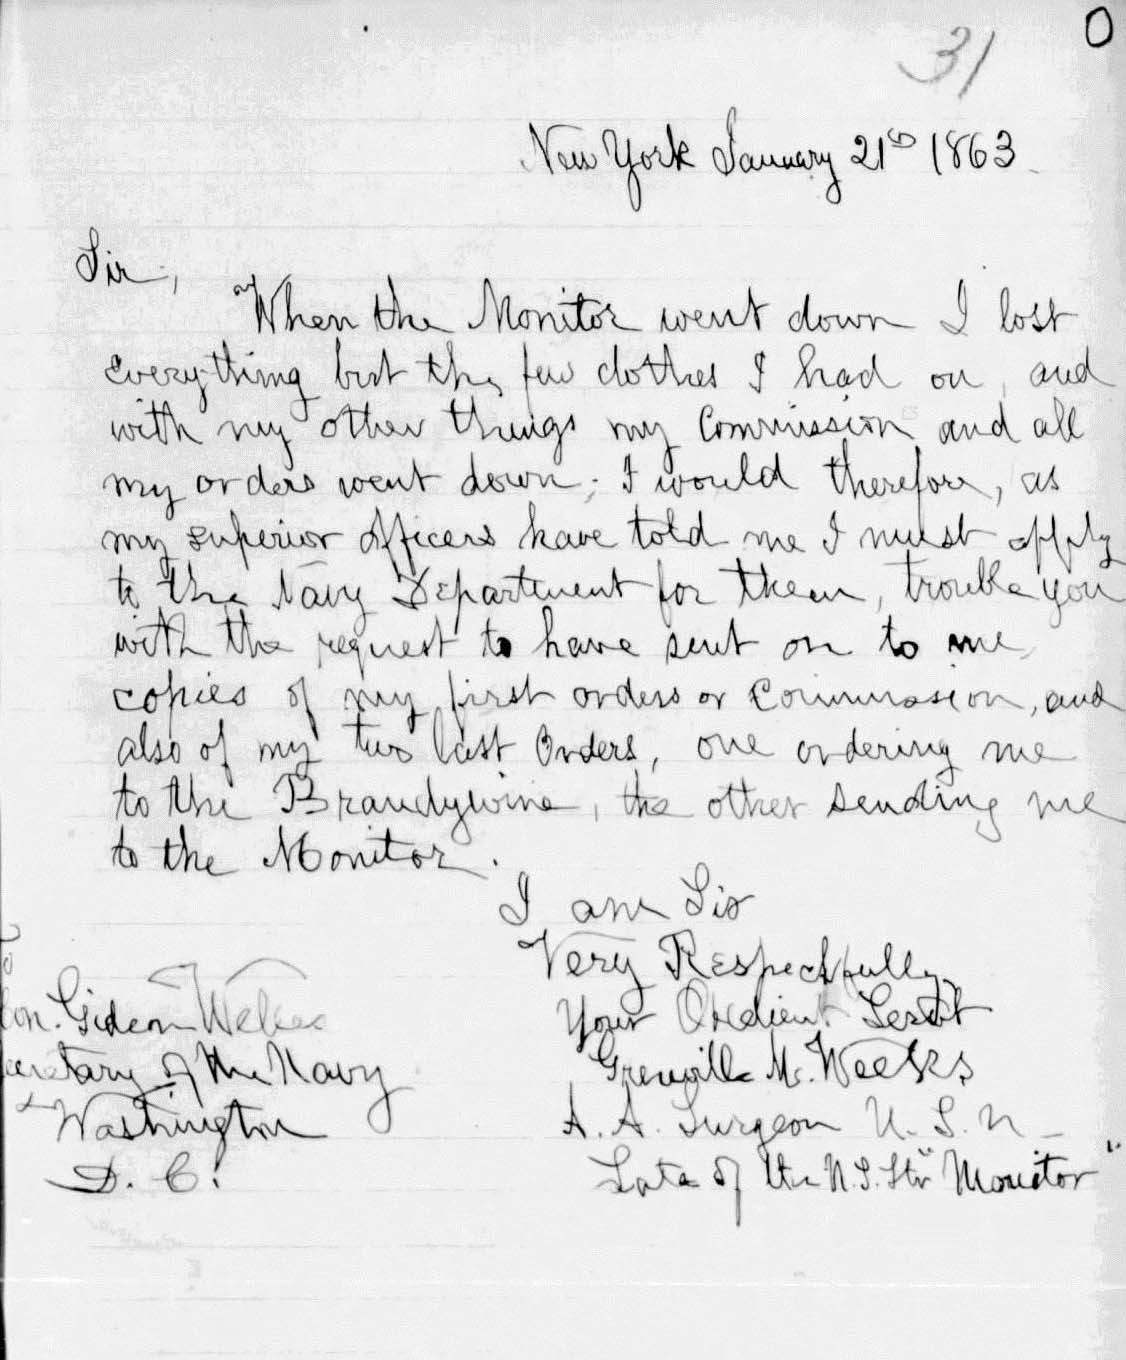 O
31
New York January 21st 1863.
Sir,
When the Monitor went down I lost
everything but the few clothes I had on, and
with my other things my Commission and all
my orders went down; I would therefore, as
my superior officers have told me I must apply
to the Navy Department for them, trouble you
with the request to have sent on to me,
copies of my first orders or Commission, and
also of my two last Orders, one ordering me
to the Brandywine, the other sending me
to the Monitor.
I am Sir
Very Respectfully
Your Obedient Servt
Grenville M. Weeks
A. A. Surgeon U.S.N
Late of the U.S. Str "Monitor"
To
Hon. Gideon Welles
Secretary of the Navy
Washington
D. C.